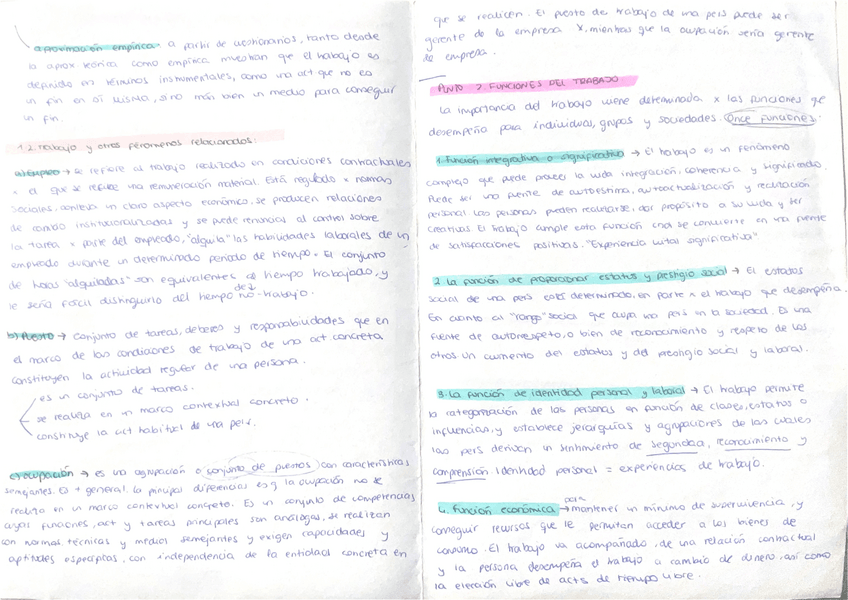 aproximación empírica: a partir de cuestionarios, tanto desde
la aprox teórica como empírica muestran que el trabajo es
definido en términos instrumentales, como una act que no es
un fin en sí misma, sino más bien un medio para conseguir
un fin.
1.2. Trabajo y otros fenómenos relacionados:
a) Empleo → se refiere al trabajo realizado en condiciones contractuales
x el que se recibe una remuneración material. Está regulado x normas
sociales, conlleva un claro aspecto económico, se producen relaciones
de cambio institucionalizadas y se puede renunciar al control sobre
la tarea x parte del empleado, "alquila" las habilidades laborales de un
empleado durante un determinado período de tiempo. El conjunto
de horas "alquiladas" son equivalentes al tiempo trabajado, y
le sería fácil distinguirlo del tiempo de no-trabajo.
b) Puesto → conjunto de tareas, deberes y responsabilidades que en
el marco de las condiciones de trabajo de una act concreta
constituyen la actividad regular de una persona.
es un conjunto de tareas.
se realiza en un marco contextual concreto.
constituye la act habitual de una pers.
c) ocupación → es una agrupación o conjunto de puestos con características
semejantes. Es + general. la principal diferencia es q la ocupación no se
realiza en un marco contextual concreto. Es un conjunto de competencias
cuyas funciones, act y tareas principales son análogas, se realizan
con normas, técnicas y medios semejantes y exigen capacidades y
aptitudes específicas, con independencia de la entidad concreta en
que se realicen. El puesto de trabajo de una pers puede ser
gerente de la empresa x, mientras que la ocupación sería gerente
de empresa.
PUNTO 2. FUNCIONES DEL TRABAJO
La importancia del trabajo viene determinada x las funciones qe
desempeña para individuos, grupos y sociedades. Once funciones:
1. Función integrativa o significativa → El trabajo es un fenómeno
complejo que puede proveer la vida integración, coherencia y significado.
Puede ser una fuente de autoestima, autoactualización y realización
personal. Las personas pueden realizarse, dar propósito a su vida y ser
creativas. El trabajo cumple esta función cnd se convierte en una fuente
de satisfacciones positivas. "Experiencia vital significativa"
2. La función de proporcionar estatus y prestigio social → El estatus
social de una pers está determinado, en parte x el trabajo que desempeña.
En cuanto al "rango" social que ocupa una pers en la sociedad. Es una
fuente de autorrespeto, o bien de reconocimiento y respeto de los
otros un aumento del estatus y del prestigio social y laboral.
3. La función de identidad personal y laboral → El trabajo permite
la categorización de las personas en función de clases, estatus o
influencias, y establece jerarquías y agrupaciones de las cuales
las pers derivan un sentimiento de seguridad, reconocimiento y
comprensión. Identidad personal = experiencias de trabajo.
4. Función económica → para mantener un mínimo de supervivencia, y
conseguir recursos que le permitan acceder a los bienes de
consumo. El trabajo va acompañado, de una relación contractual
y la persona desempeña el trabajo a cambio de dinero, así como
la elección libre de acts de tiempo libre.